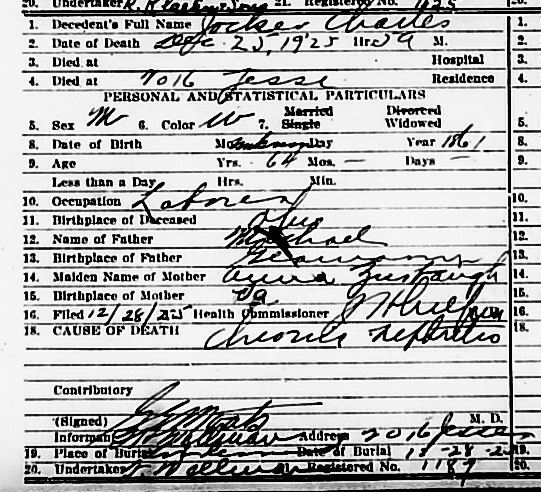 20. Undertaker 21. Registered No. 425 20.
1. Decedent's Full Name Jocker Charles 1.
2. Date of Death Dec 25, 1925 Hrs 59 M. 2.
3. Died at Hospital 3.
4. Died at 2016 Jesse Residence 4.
PERSONAL AND STATISTICAL PARTICULARS
5. Sex M 6. Color W 7. Married Single Divorced Widowed 5.
8. Date of Birth Mo. Unknown Day Year 1861 8.
9. Age Yrs. 64 Mos. — Days — 9.
Less than a Day Hrs. Min.
10. Occupation Laborer 10.
11. Birthplace of Deceased Ohio 11.
12. Name of Father Michael 12.
13. Birthplace of Father Germany 13.
14. Maiden Name of Mother Anna 14.
15. Birthplace of Mother Va 15.
16. Filed 12/28/25 Health Commissioner 16.
18. CAUSE OF DEATH Chronic Nephritis 18.
Contributory
(Signed) M. D.
Informant Address 2016 Jesse
19. Place of Burial Date of Burial 12-28-25 19.
20. Undertaker Registered No. 1189 20.